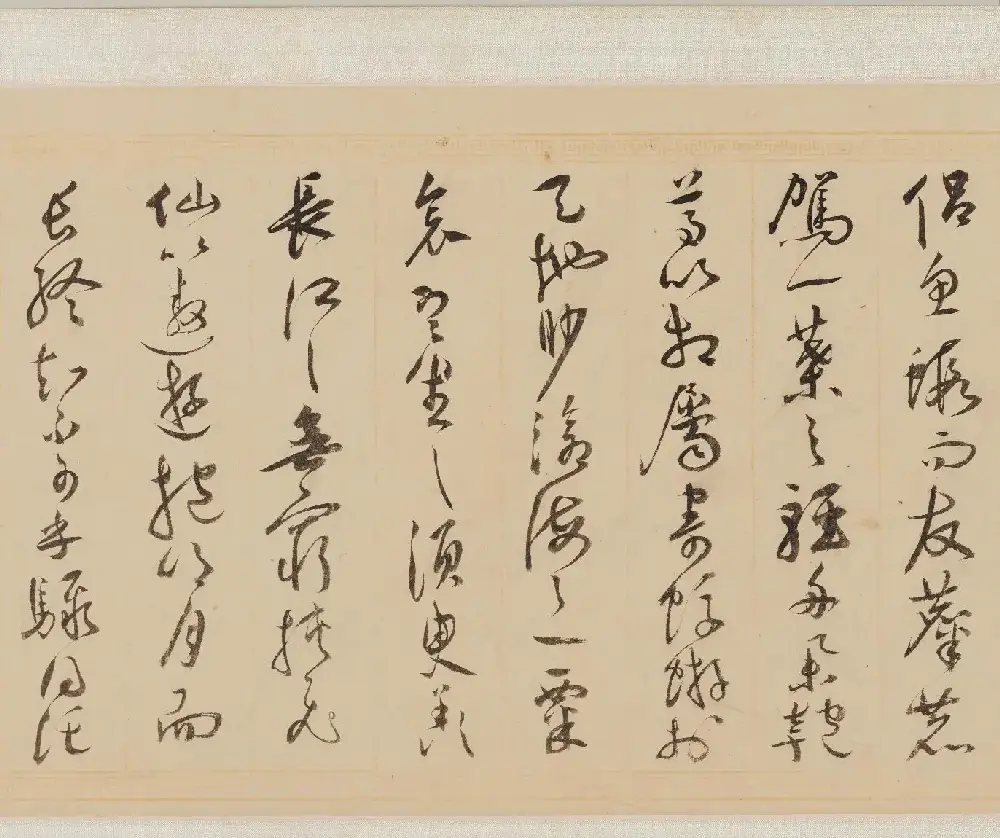 侶魚蝦而友麋鹿
駕一葉之輕舟舉匏
尊以相屬寄蜉蝣於
天地眇滄海之一粟
哀吾生之須臾羨
長江之無窮挾飛
仙以遨遊抱明月而
長終知不可乎驟得托